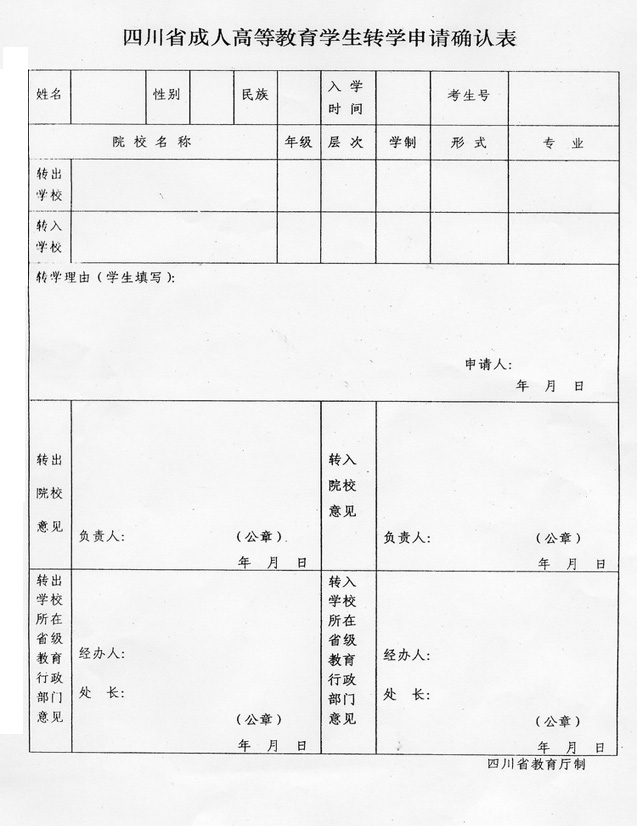 四川省成人高等教育学生转学申请确认表
姓名 性别 民族 入学时间 考生号
院校名称 年级 层次 学制 形式 专业
转出学校
转入学校
转学理由（学生填写）：
申请人：
年 月 日
转出院校意见
负责人： （公章）
年 月 日
转入院校意见
负责人： （公章）
年 月 日
转出学校所在省级教育行政部门意见
经办人：
处 长：
（公章）
年 月 日
转入学校所在省级教育行政部门意见
经办人：
处 长：
（公章）
年 月 日
四川省教育厅制